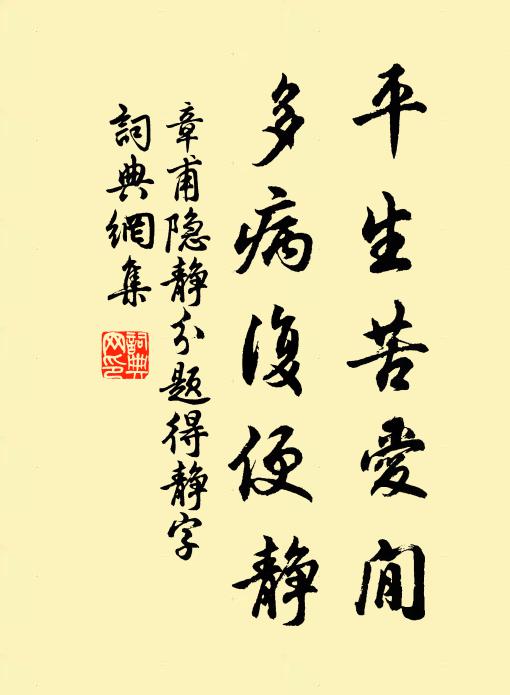 平生苦愛閒
多病復便静
章甫隐静分題得静字
詞典網集
詞典網印